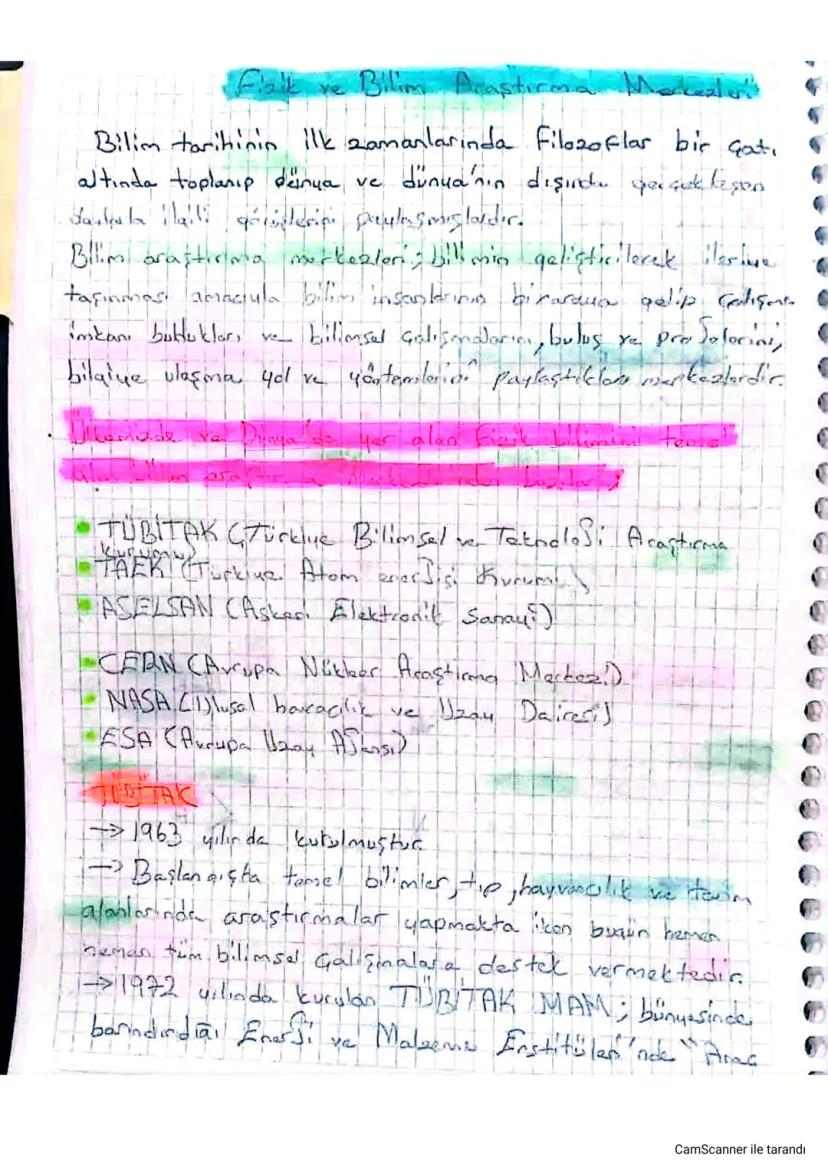 Fizik ve Bilim Araştırma Merkezleri
Bilim tarihinin ilk zamanlarında filozoflar bir çatı
altında toplanıp dünya ve dünya'nın dışında gerçekleşen
olaylarla ilgili görüşlerini paylaşmışlardır.
Bilim araştırma merkezleri; bilimin geliştirilerek ileriye
taşınması amacıyla bilim insanlarının bir araya gelip çalışma
imkanı buldukları ve bilimsel çalışmalarını, buluş ve projelerini,
bilgiye ulaşma yol ve yöntemlerini paylaştıkları merkezlerdir.
Ülkemizde ve Dünya'da yer alan fizik bilimini temel
alan bilim araştırma merkezlerinden bazıları;
• TÜBİTAK (Türkiye Bilimsel ve Teknoloji Araştırma
Kurumu)
• TAEK (Türkiye Atom enerjisi Kurumu)
• ASELSAN (Askeri Elektronik Sanayi)
• CERN (Avrupa Nükleer Araştırma Merkezi)
• NASA (Ulusal havacılık ve Uzay Dairesi)
• ESA (Avrupa Uzay Ajansı)
TÜBİTAK
→ 1963 yılında kurulmuştur
→ Başlangıçta temel bilimler, tıp, hayvancılık ve tarım
alanlarında araştırmalar yapmakta iken bugün hemen
hemen tüm bilimsel çalışmalara destek vermektedir.
→ 1972 yılında kurulan TÜBİTAK MAM; bünyesinde
barındırdığı Enerji ve Malzeme Enstitüleri'nde "Araç
CamScanner ile tarandı